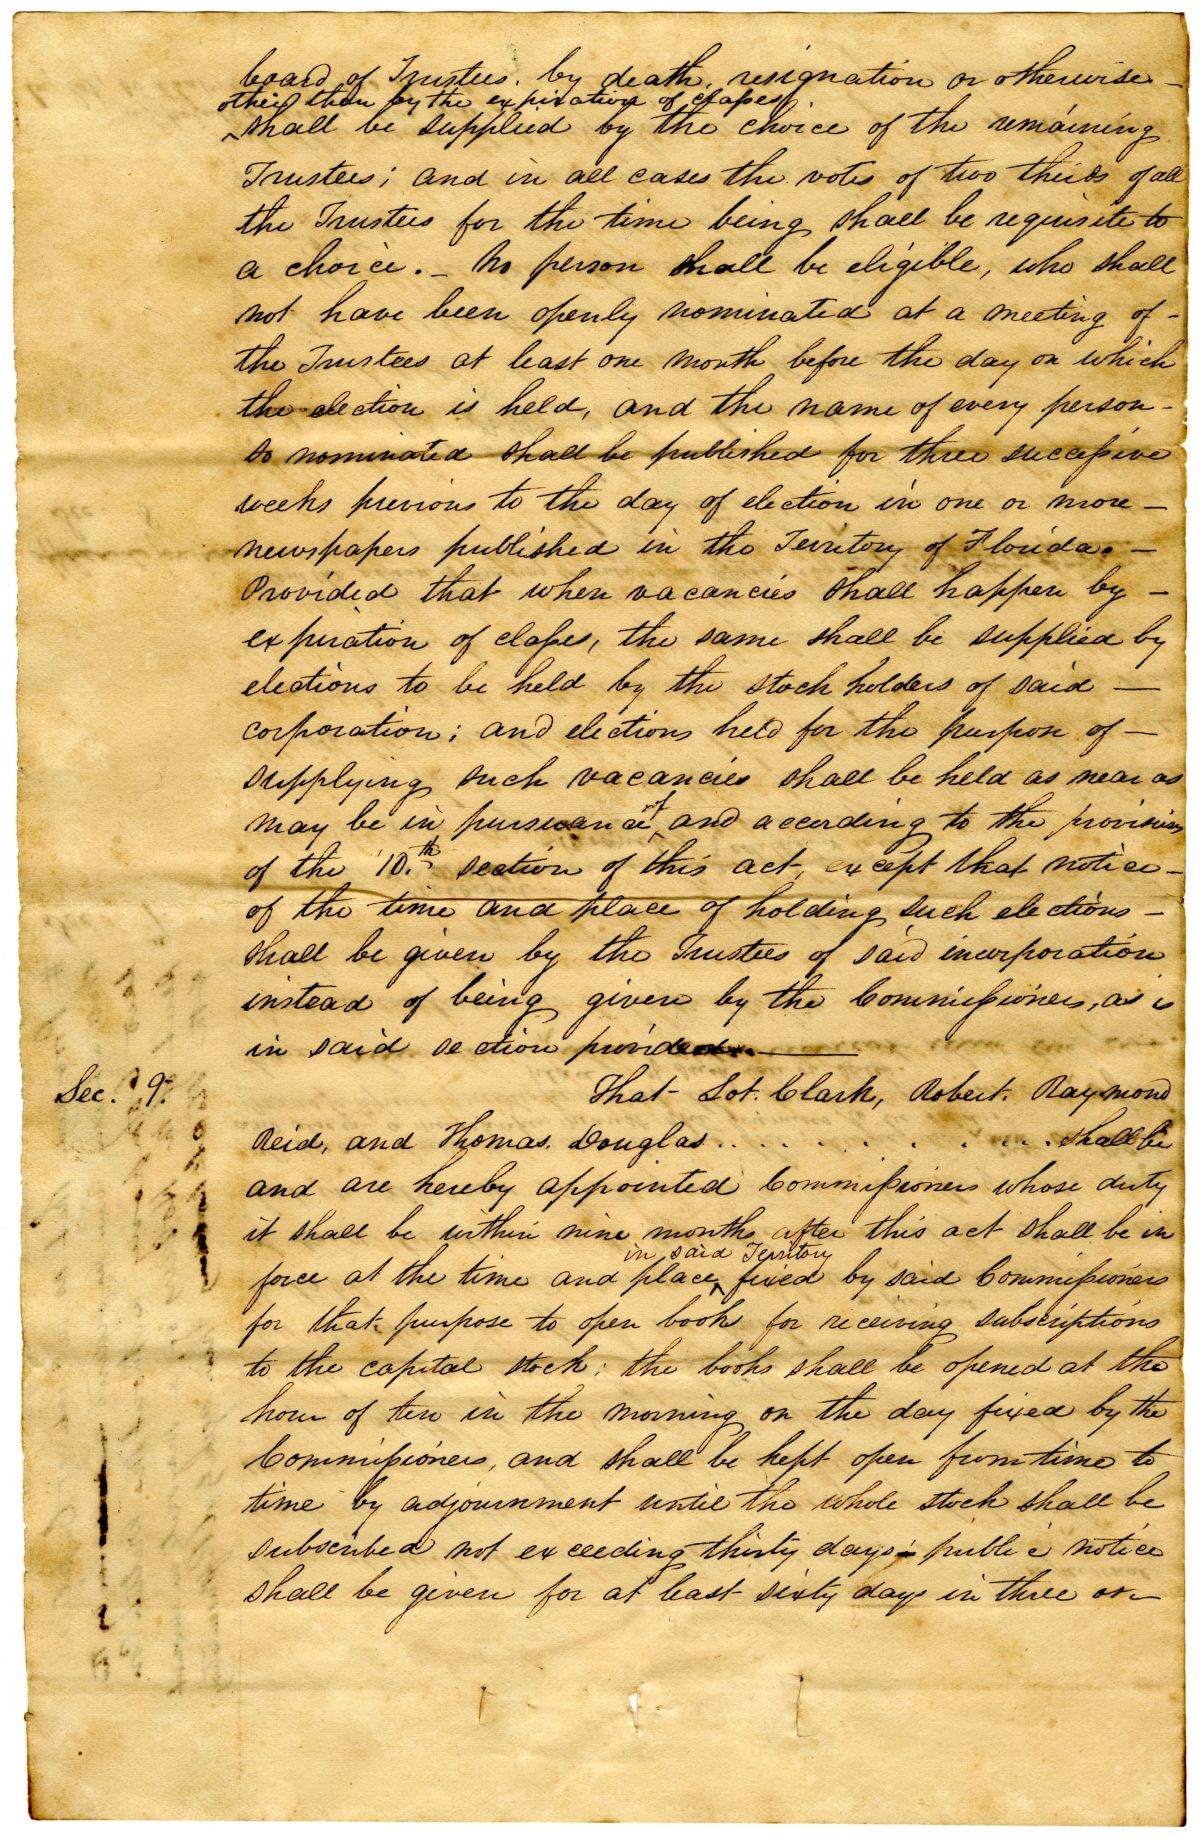 board of Trustees. by death, resignation or otherwise —
other than by the expiration of classes
shall be supplied by the choice of the remaining
Trustees; and in all cases the votes of two thirds of all
the Trustees for the time being shall be requisite to
a choice. — No person shall be eligible, who shall
not have been openly nominated at a meeting of —
the Trustees at least one month before the day on which
the election is held, and the name of every person —
so nominated shall be published for three successive
weeks previous to the day of election in one or more —
newspapers published in the Territory of Florida. —
Provided that when vacancies shall happen by —
expiration of classes, the same shall be supplied by
elections to be held by the stock holders of said —
corporation; and elections held for the purpose of —
supplying such vacancies shall be held as near as
of
may be in pursuance ^ and according to the provisions
of the 10.th section of this act, except that notice —
of the time and place of holding such elections —
shall be given by the Trustees of said incorporation
instead of being given by the Commissioners, as is
in said section provided. —
Sec. 9. That Lot. Clark, Robert. Raymond
Reid, and Thomas. Douglas . . . . . . . . . . shall be
and are hereby appointed Commissioners whose duty
it shall be within nine months after this act shall be in
in said Territory
force at the time and place ^ fixed by said Commissioners
for that purpose to open books for receiving subscriptions
to the capital stock; the books shall be opened at the
hour of ten in the morning on the day fixed by the
Commissioners, and shall be kept open from time to
time by adjournment until the whole stock shall be
subscribed not exceeding thirty days; public notice
shall be given for at least sixty days in three or —